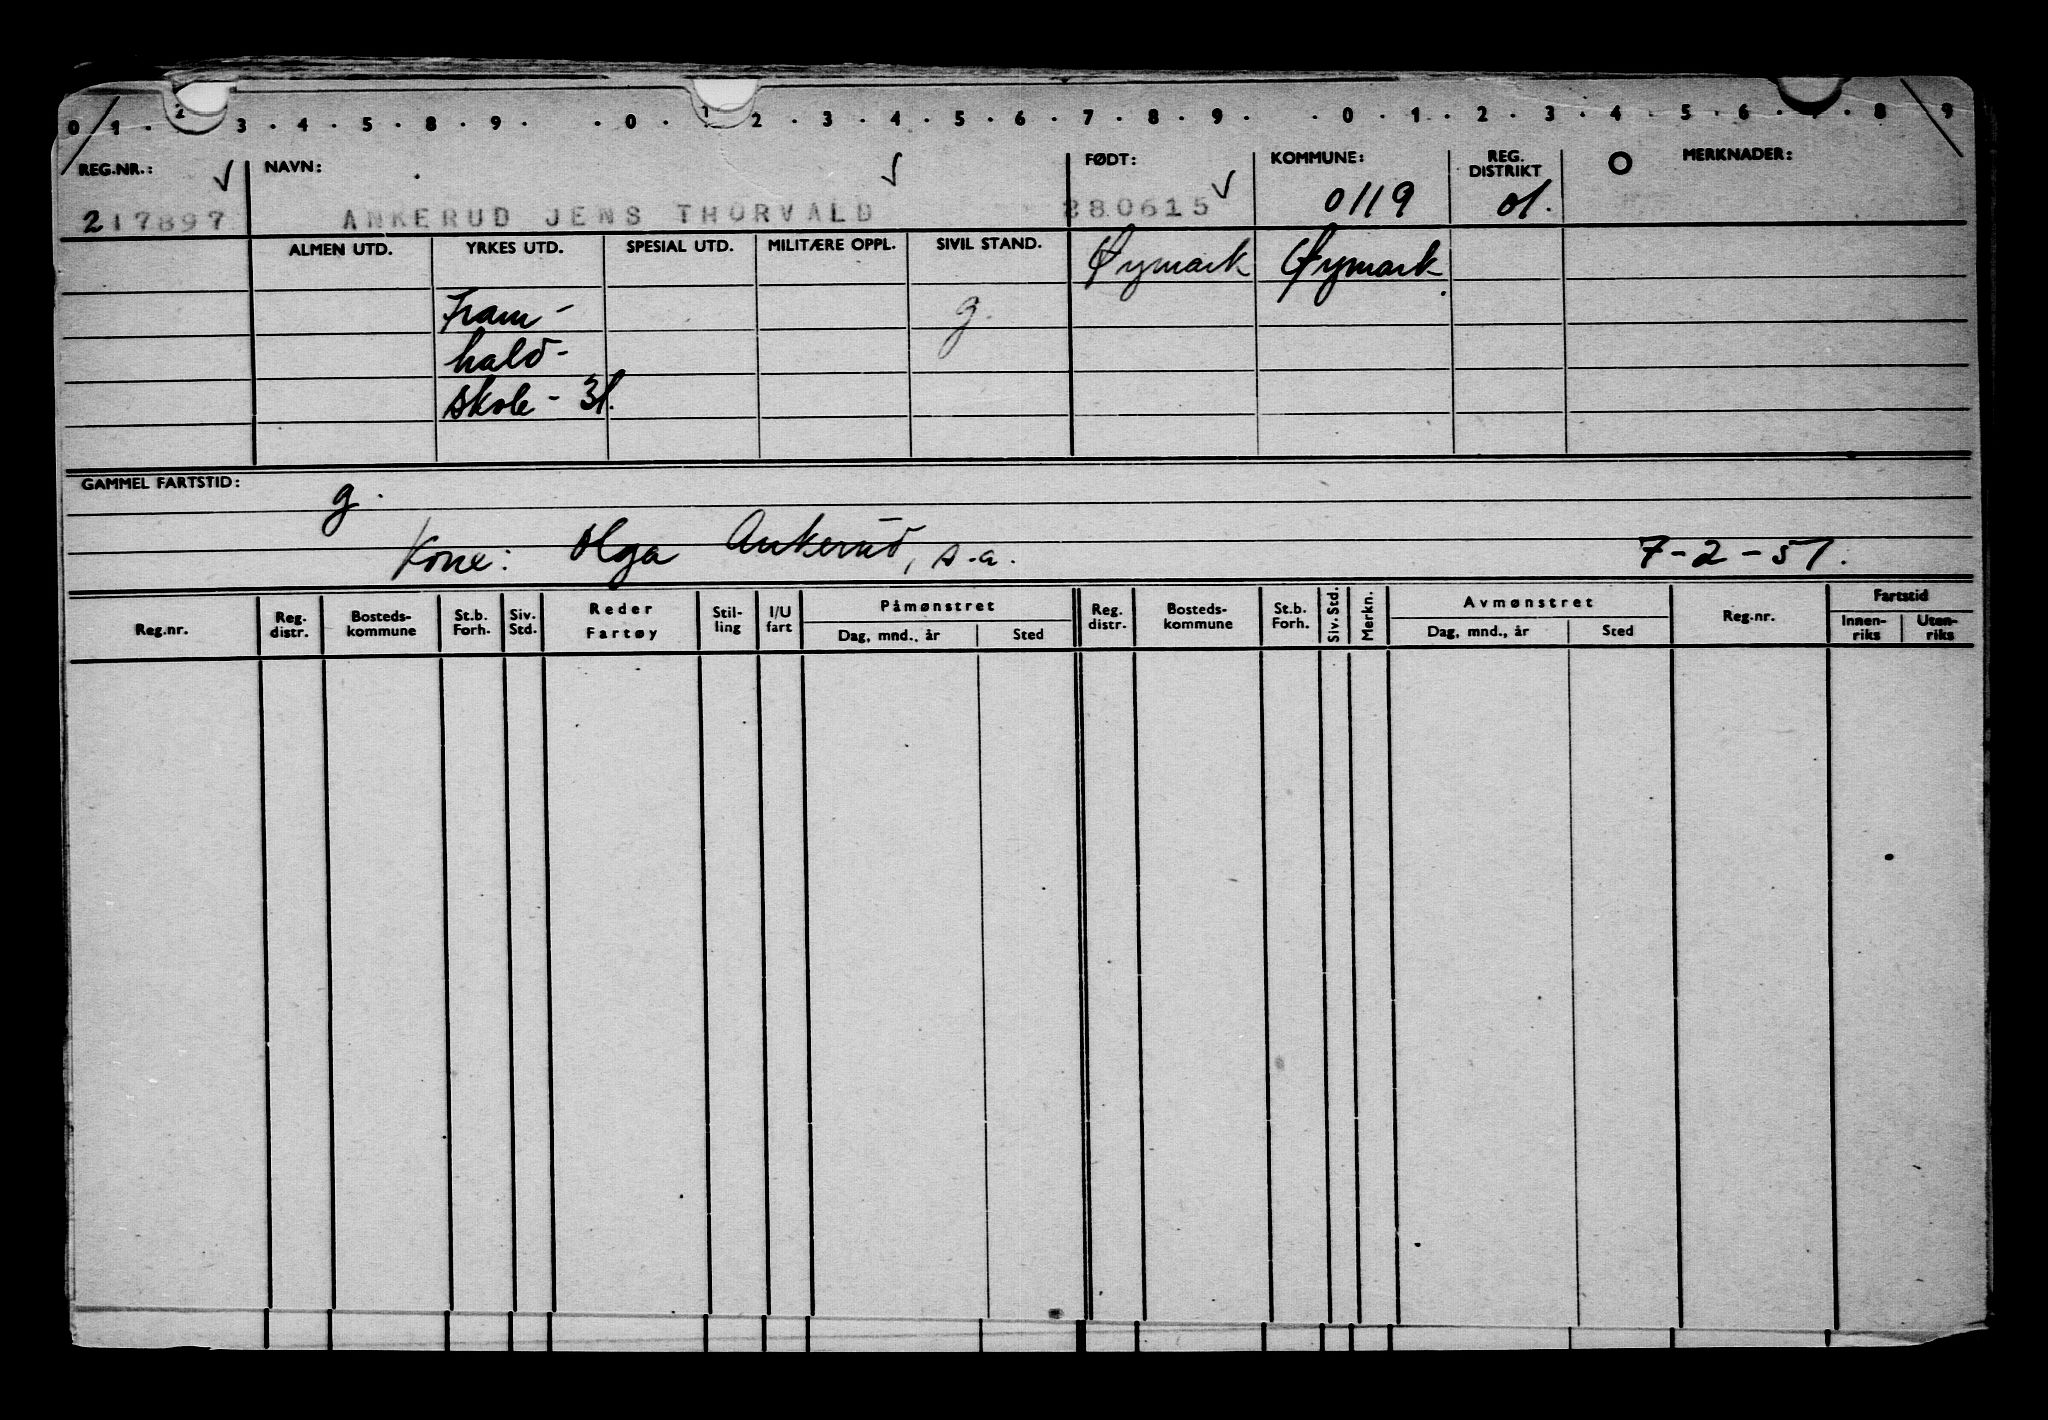 0 1 . 2 3 . 4 . 5 . 8 . 9 . . 0 . 1 2 . 3 . 4 . 5 . 6 . 7 . 8 . 9 . . 0 . 1 . 2 . 3 . 4 . 5 . 6 . 7 . 8 . 9
REG.NR.: NAVN: FØDT: KOMMUNE: REG. DISTRIKT MERKNADER:
217897 ANKERUD JENS THORVALD 280615 0119 01.
ALMEN UTD. YRKES UTD. SPESIAL UTD. MILITÆRE OPPL. SIVIL STAND. Øymark Øymark.
Fram- g.
hald-
skole - 31.
GAMMEL FARTSTID: g.
Kone: Olga Ankerud, s.a. 7-2-51.
Reg.nr. Reg. distr. Bosteds-kommune St.b. Forh. Siv. Std. Reder Fartøy Stil-ling I/U fart Påmønstret Reg. distr. Bosteds-kommune St.b. Forh. Siv. Std. Merkn. Avmønstret Reg.nr. Fartstid
Dag, mnd., år Sted Dag, mnd., år Sted Innen-riks Uten-riks